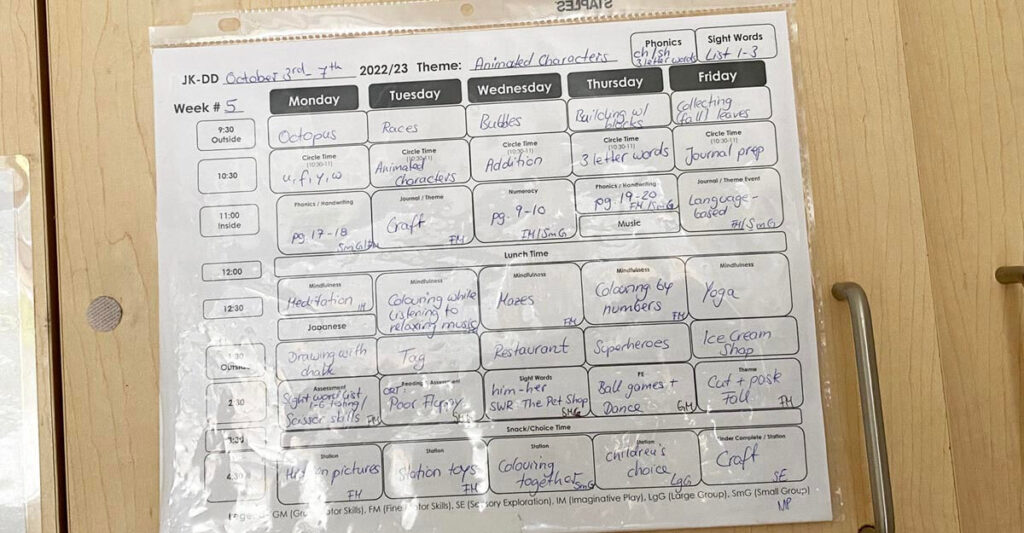 STAPLES
Phonics
ch/sh
3 letter words
Sight Words
List 1-3
JK-DD October 3rd - 7th 2022/23 Theme: Animated Characters
Week # 5
Monday
Tuesday
Wednesday
Thursday
Friday
9:30
Outside
Octopus
Races
Bubbles
Building w/
blocks
Collecting
fall leaves
10:30
Circle Time
(10:30-11)
u, f, y, w
Circle Time
(10:30-11)
Animated
Characters
Circle Time
(10:30-11)
Addition
Circle Time
(10:30-11)
3 letter words
Circle Time
(10:30-11)
Journal prep
11:00
Inside
Phonics / Handwriting
pg. 17-18
SmG/FM
Journal / Theme
Craft
FM
Numeracy
pg. 9-10
IM/SmG
Phonics / Handwriting
pg. 19-20
FM/SmG
Music
Journal / Theme Event
Language-
based
FM/SmG
12:00
Lunch Time
12:30
Mindfulness
Meditation
IM
Japanese
Mindfulness
Colouring while
listening to
relaxing music
Mindfulness
Mazes
FM
Mindfulness
Colouring by
numbers
FM
Mindfulness
Yoga
1:30
Outside
Drawing with
chalk
Tag
Restaurant
Superheroes
Ice Cream
Shop
2:30
Assessment
Sight word list
testing/
Scissor skills
FM
Reading / Assessment
ORT:
Poor Floppy
Sight Words
him-her
SWR: The Pet Shop
SMG
PE
Ball games +
Dance
GM
Theme
Cut + paste
Fall
FM
3:30
Snack/Choice Time
4:30
Station
Hidden pictures
FM
Station
Station toys
FM
Station
Colouring
together
SmG
Station
Children's
choice
LgG
Kinder Complete / Station
Craft
SE
Legend: GM (Gross Motor Skills), FM (Fine Motor Skills), SE (Sensory Exploration), IM (Imaginative Play), LgG (Large Group), SmG (Small Group)
MP